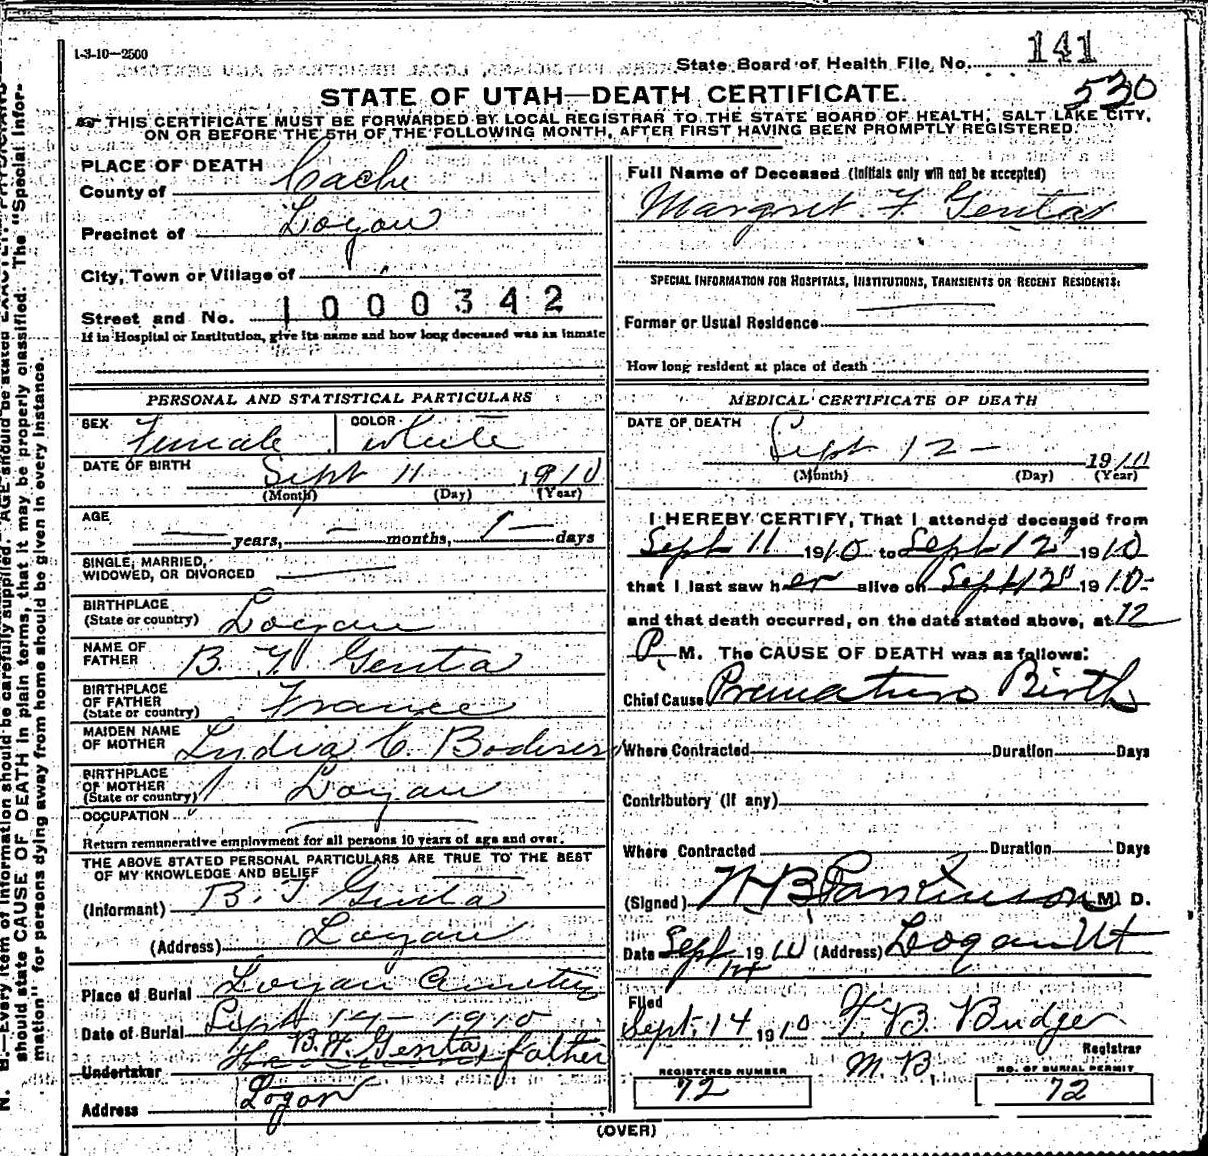 1-3-10—2500
State Board of Health File No. 141
530
STATE OF UTAH—DEATH CERTIFICATE.
THIS CERTIFICATE MUST BE FORWARDED BY LOCAL REGISTRAR TO THE STATE BOARD OF HEALTH, SALT LAKE CITY,
ON OR BEFORE THE 5TH OF THE FOLLOWING MONTH, AFTER FIRST HAVING BEEN PROMPTLY REGISTERED.
PLACE OF DEATH
County of Cache
Precinct of Logan
City, Town or Village of
Street and No. 1000342
If in Hospital or Institution, give its name and how long deceased was an inmate
PERSONAL AND STATISTICAL PARTICULARS
SEX Female COLOR White
DATE OF BIRTH Sept 11 1910
(Month) (Day) (Year)
AGE — years, — months, 1 — days
SINGLE, MARRIED,
WIDOWED, OR DIVORCED
BIRTHPLACE
(State or country) Logan
NAME OF
FATHER B. F. Genta
BIRTHPLACE
OF FATHER
(State or country) France
MAIDEN NAME
OF MOTHER Lydia C.
BIRTHPLACE
OF MOTHER
(State or country) Logan
OCCUPATION
Return remunerative employment for all persons 10 years of age and over.
THE ABOVE STATED PERSONAL PARTICULARS ARE TRUE TO THE BEST
OF MY KNOWLEDGE AND BELIEF
(Informant) B. F. Genta
(Address) Logan
Place of Burial Logan Cemetery
Date of Burial Sept 14 - 1910
Undertaker B. F. Genta, father
Address Logan
Full Name of Deceased (Initials only will not be accepted)
Margret F Genta
SPECIAL INFORMATION FOR HOSPITALS, INSTITUTIONS, TRANSIENTS OR RECENT RESIDENTS:
Former or Usual Residence
How long resident at place of death
MEDICAL CERTIFICATE OF DEATH
DATE OF DEATH
Sept 12 — 1910
(Month) (Day) (Year)
I HEREBY CERTIFY, That I attended deceased from
Sept 11 1910 to Sept 12 1910
that I last saw her alive on Sept 12 1910
and that death occurred, on the date stated above, at 12
P. M. The CAUSE OF DEATH was as follows:
Chief Cause Premature Birth
Where Contracted Duration Days
Contributory (if any)
Where Contracted Duration Days
(Signed) W B Parkinson M. D.
Date Sept 14 1910 (Address) Logan Ut
Filed
Sept. 14 1910 F. B. Budge
Registrar
REGISTERED NUMBER
72
NO. OF BURIAL PERMIT
72
(OVER)
N. B.—Every item of information should be carefully supplied. AGE should be stated EXACTLY. PHYSICIANS
should state CAUSE OF DEATH in plain terms, that it may be properly classified. The "Special Infor-
mation" for persons dying away from home should be given in every instance.